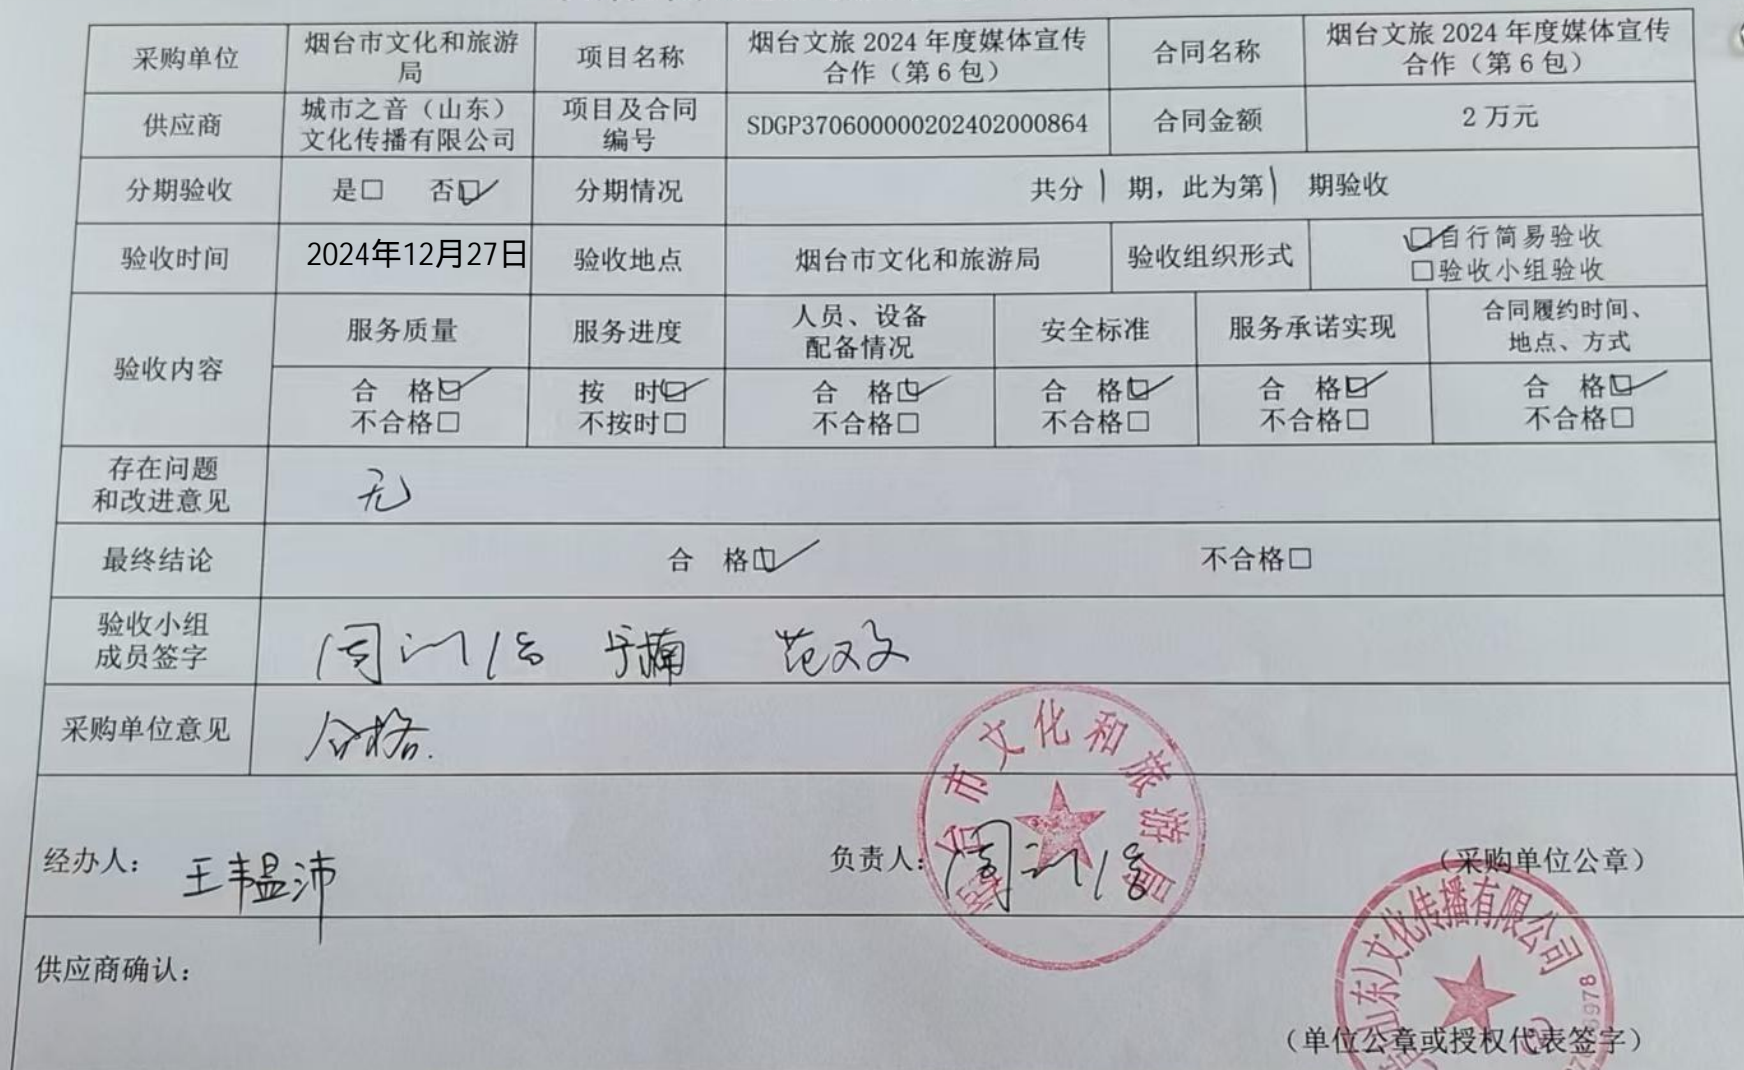 采购单位 烟台市文化和旅游局 项目名称 烟台文旅 2024 年度媒体宣传合作（第 6 包） 合同名称 烟台文旅 2024 年度媒体宣传合作（第 6 包）
供应商 城市之音（山东）文化传播有限公司 项目及合同编号 SDGP370600000202402000864 合同金额 2 万元
分期验收 是□ 否☑ 分期情况 共分 1 期，此为第 1 期验收
验收时间 2024年12月27日 验收地点 烟台市文化和旅游局 验收组织形式 ☑自行简易验收
□验收小组验收
验收内容 服务质量 服务进度 人员、设备配备情况 安全标准 服务承诺实现 合同履约时间、地点、方式
合 格☑ 按 时☑ 合 格☑ 合 格☑ 合 格☑ 合 格☑
不合格□ 不按时□ 不合格□ 不合格□ 不合格□ 不合格□
存在问题和改进意见 无
最终结论 合 格☑ 不合格□
验收小组成员签字 于楠
采购单位意见 合格.
市文化和旅游局
经办人： 王韫沛 负责人： （采购单位公章）
山东）文化传播有限公司
供应商确认：
（单位公章或授权代表签字）